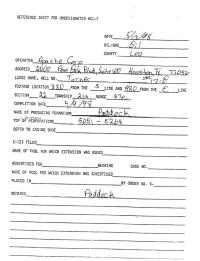 REFERENCE SHEET FOR UNDESIGNATED WELLS
DATE 5/2/98
OIL/GAS Oil
COUNTY Lea
OPERATOR Apache Corp
ADDRESS 2000 Post Oak Blvd, Suite 100 Houston TX 77056
LEASE NAME, WELL NO. Turner
FOOTAGE LOCATION 330 FROM THE S LINE AND FROM THE E LINE
SECTION 22 TOWNSHIP 21S RANGE 37E
COMPLETION DATE 4/9/98
NAME OF PRODUCING FORMATION Paddock
TOP OF PERFORATIONS 5051 - 5264
DEPTH TO CASING SHOE
C-123 FILED
NAME OF POOL FOR WHICH EXTENSION WAS ASKED
ADVERTISED FOR HEARING CASE NO.
NAME OF POOL FOR WHICH EXTENSION WAS ADVERTISED
PLACED IN BY ORDER NO. R-
REMARKS Paddock